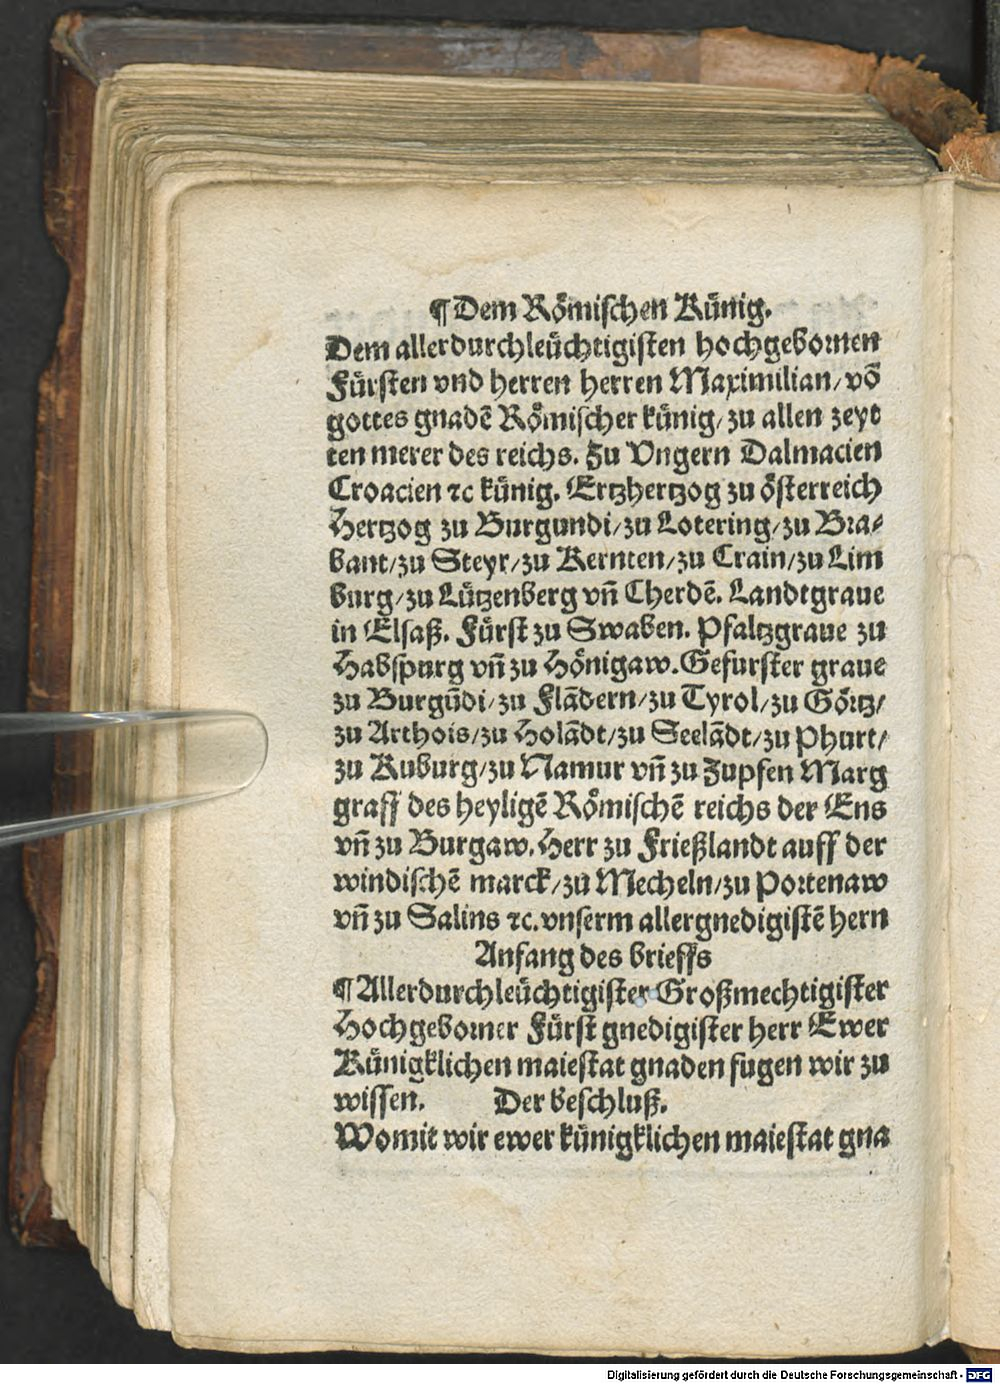 ¶Dem Römischen Künig.
Dem allerdurchleüchtigisten hochgebornen
Fürsten vnd herren herren Maximilian/ võ
gottes gnadẽ Römischer künig/ zu allen zeyt
ten merer des reichs. Zu Vngern Dalmacien
Croacien ⁊c künig. Ertzhertzog zu österreich
Hertzog zu Burgundi/ zu Lotering/ zu Bra⸗
bant/ zu Steyr/ zu Kernten/ zu Crain/ zu Lim
burg/ zu Lützenberg vñ Cherdẽ. Landtgraue
in Elsaß. Fürst zu Swaben. Pfaltzgraue zu
Habspurg vñ zu Hönigaw. Gefurster graue
zu Burgũdi/ zu Flãdern/ zu Tyrol/ zu Görtz/
zu Arthois/ zu Holãdt/ zu Seelãdt/ zu Phurt/
zu Kuburg/ zu Namur vñ zu Zupfen Marg
graff des heyligẽ Römischẽ reichs der Ens
vñ zu Burgaw. Herr zu Frießlandt auff der
windischẽ marck/ zu Mecheln/ zu Portenaw
vñ zu Salins ⁊c. vnserm allergnedigistẽ hern
Anfang des brieffs
¶Allerdurchleüchtigister Großmechtigister
Hochgeborner Fürst gnedigister herr Ewer
Künigklichen maiestat gnaden fugen wir zu
wissen. Der beschluß.
Womit wir ewer künigklichen maiestat gna
Digitalisierung gefördert durch die Deutsche Forschungsgemeinschaft - DFG